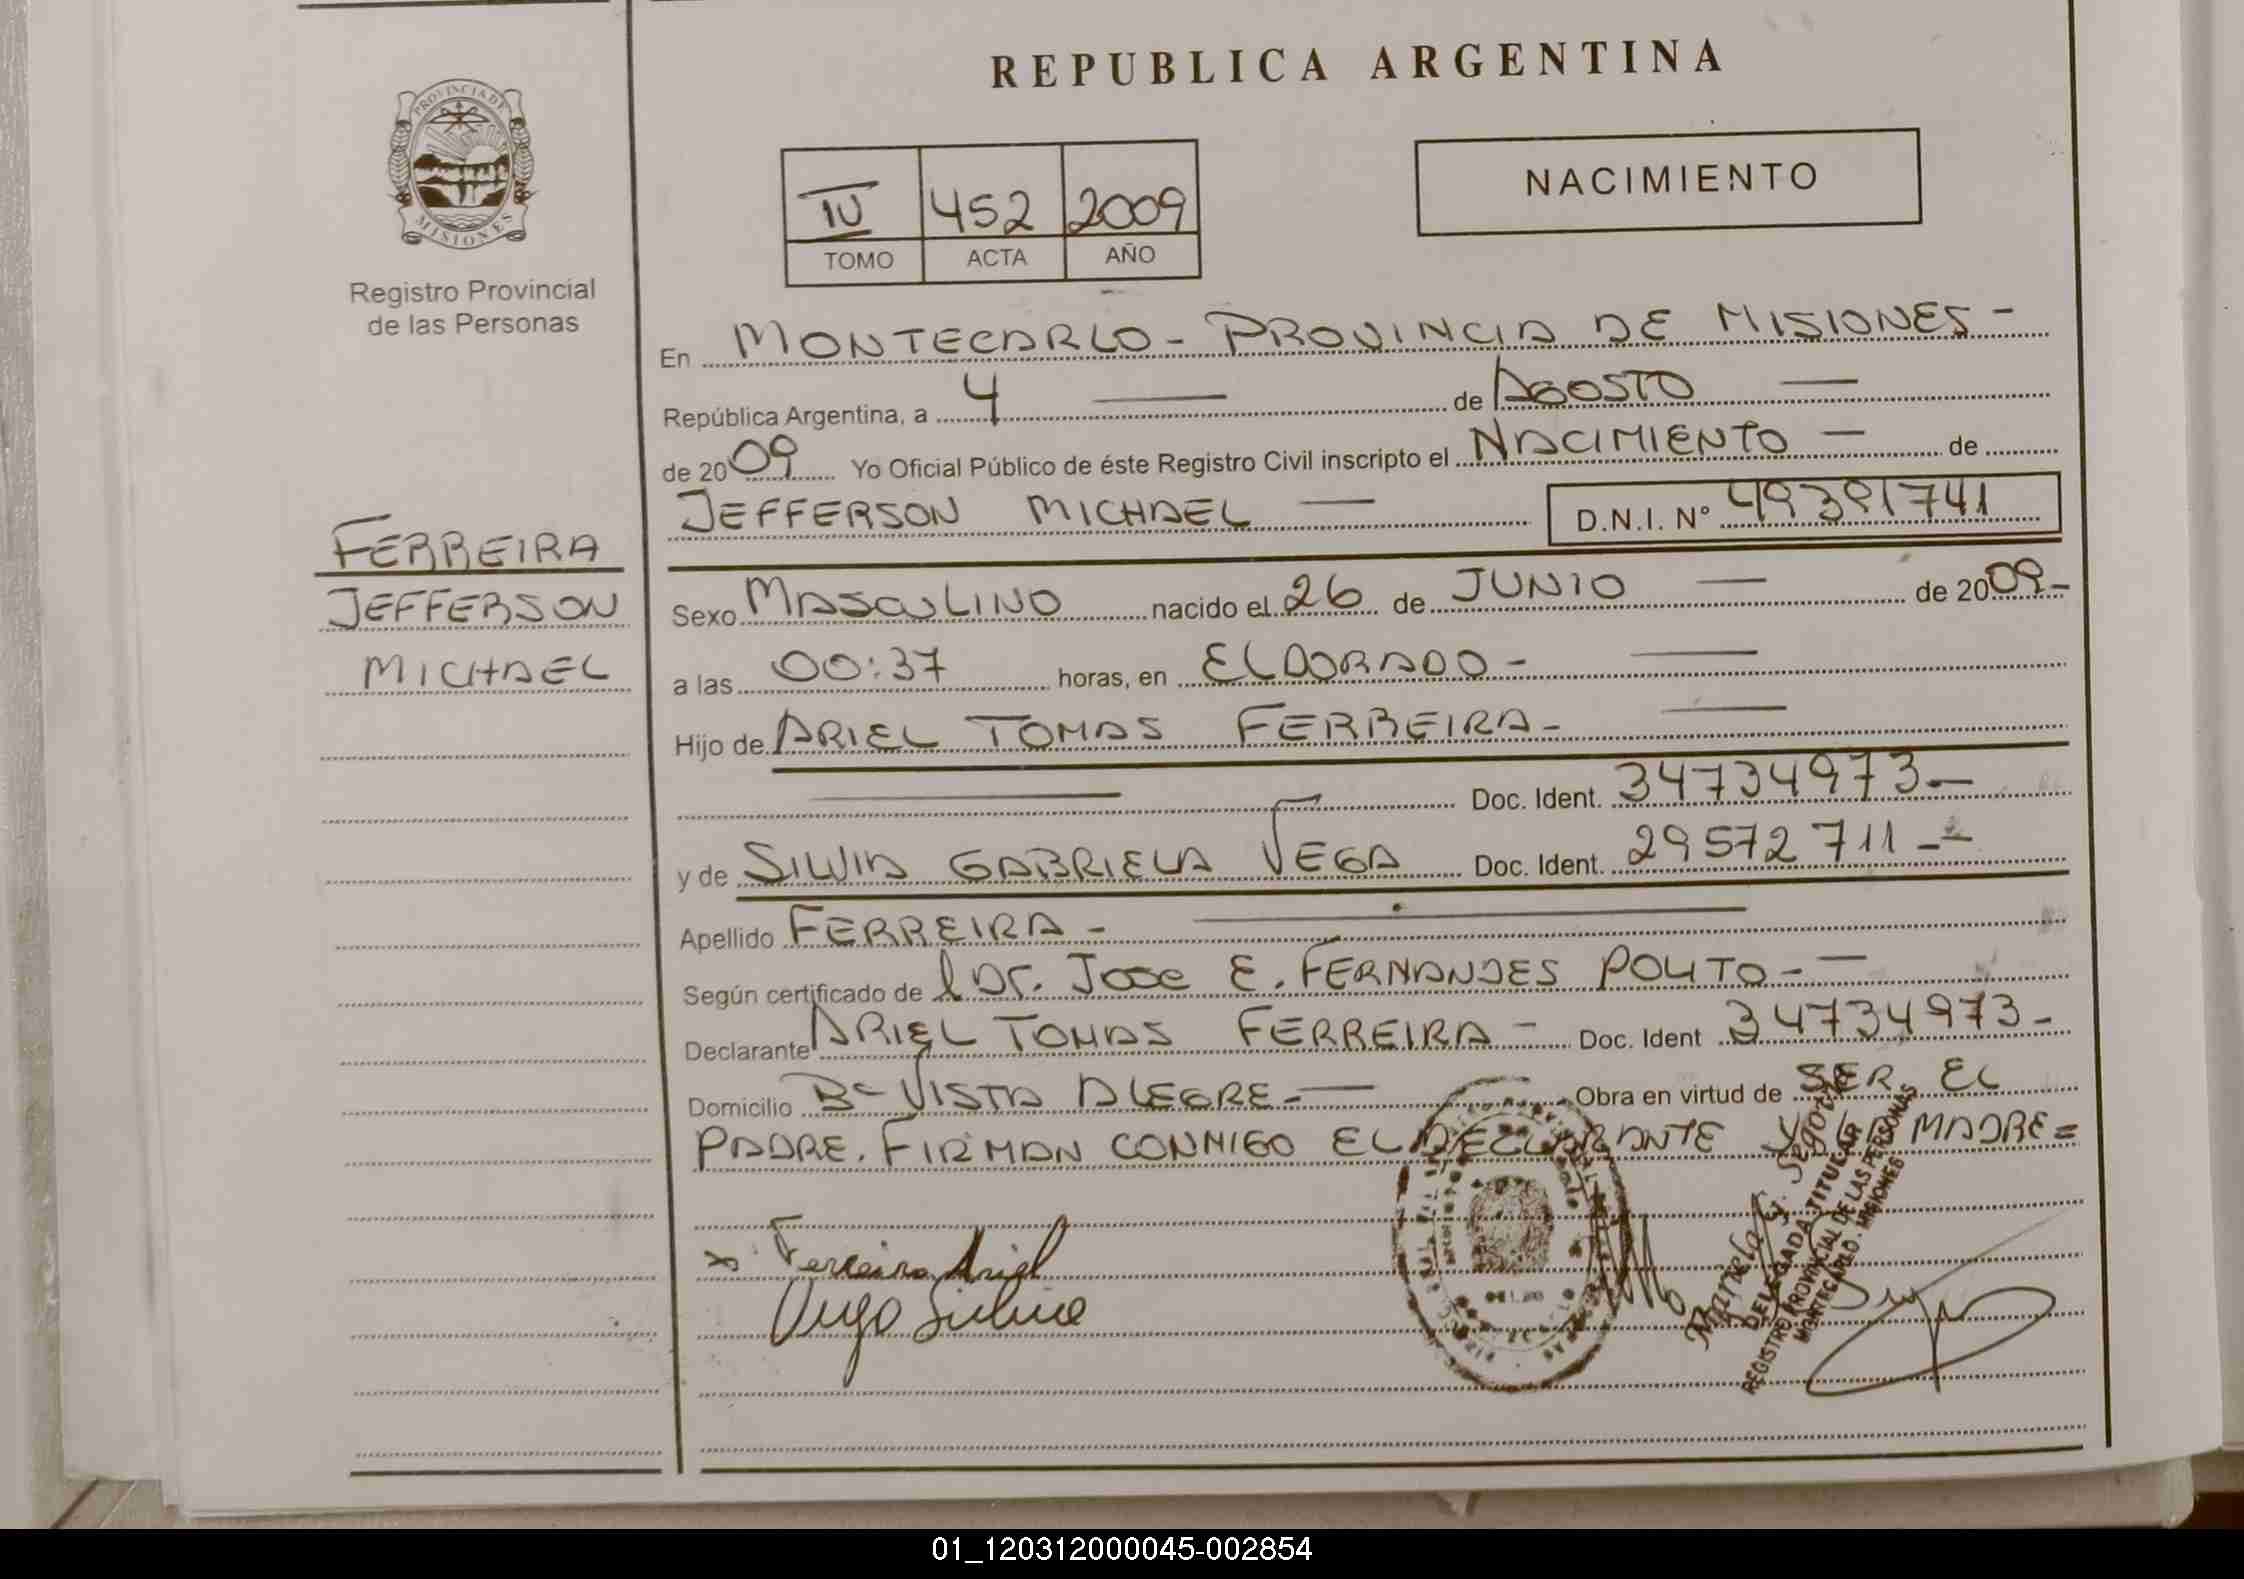 REPUBLICA ARGENTINA
PROVINCIA DE
MISIONES
Registro Provincial
de las Personas
NACIMIENTO
IV 452 2009
TOMO ACTA AÑO
En MONTECARLO - PROVINCIA DE MISIONES -
República Argentina, a 4 — de AGOSTO —
de 2009 Yo Oficial Público de éste Registro Civil inscripto el NACIMIENTO — de
JEFFERSON MICHAEL — D.N.I. Nº 49391741
FERREIRA
JEFFERSON
MICHAEL
Sexo MASCULINO nacido el 26 de JUNIO — de 2009-
a las 00:37 horas, en ELDORADO - —
Hijo de ARIEL TOMAS FERREIRA - —
— Doc. Ident. 34734973 —
y de SILVIA GABRIELA VEGA Doc. Ident. 29572711 --
Apellido FERREIRA - —
Según certificado de l Dr. JOSE E. FERNANDES POLITO - —
Declarante ARIEL TOMAS FERREIRA - Doc. Ident 34734973 -
Domicilio Bº VISTA ALEGRE - — Obra en virtud de SER EL
PADRE. FIRMAN CONMIGO EL DECLARANTE Y LA MADRE =
x Ferreira Ariel
Vega Silvia
DELEGADA TITULAR
REGISTRO PROVINCIAL DE LAS PERSONAS
MONTECARLO - MISIONES
01_120312000045-002854